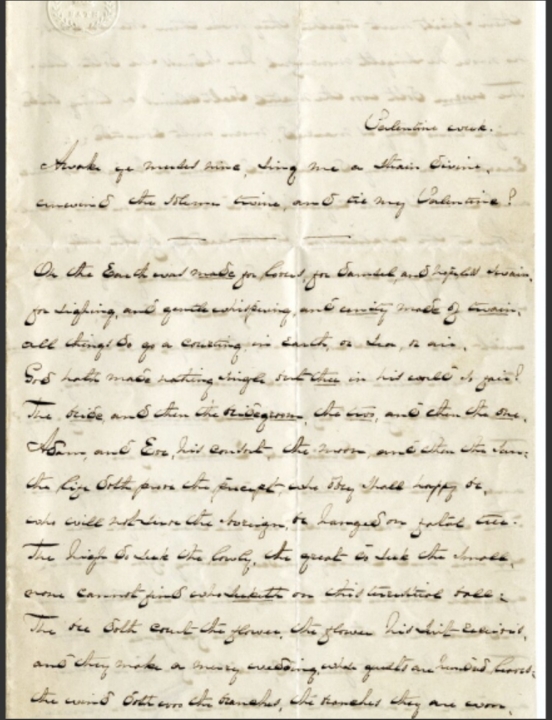 Valentine week.
Awake ye muses nine, sing me a strain divine,
unwind the solemn twine, and tie my Valentine!
Oh the Earth was made for lovers, for damsel, and hopeless swain,
for sighing, and gentle whispering, and unity made of twain,
all things do go a courting, in earth, or sea, or air,
God hath made nothing single but thee in his world so fair!
The bride, and then the bridegroom, the two, and then the one,
Adam, and Eve, his consort, the moon, and then the sun;
the life doth prove the precept, who obey shall happy be,
who will not serve the sovreign, be hanged on fatal tree.
The high do seek the lowly, the great do seek the small,
none cannot find who seeketh on this terrestrial ball;
The bee doth court the flower, the flower his suit receives,
and they make a merry wedding, whose guests are hundred leaves;
the wind doth woo the branches, the branches they are won,